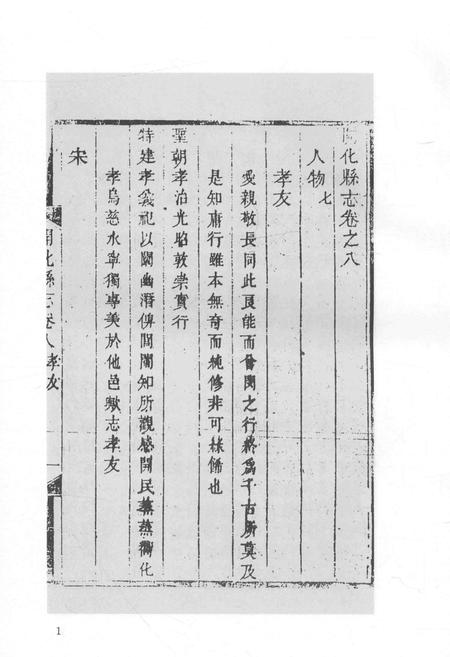 開化縣志卷之八
人物七
孝友
愛親敬長同此良能而曾閔之行終爲千古所莫及
是知庸行雖本無奇而純修非可襲飾也
聖朝孝治光昭敦崇實行
特建孝義祀以闡幽潛俾閭閻知所觀感開民蒸蒸嚮化
孝烏慈水寧獨專美於他邑歟志孝友
宋
開化縣志卷八 孝友 一
1